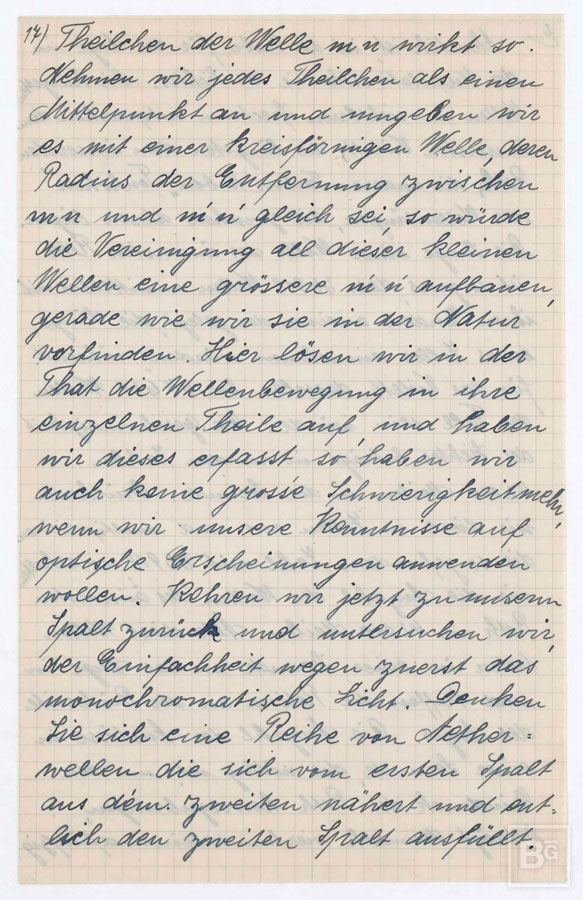 17) Theilchen der Welle m n wirkt so.
Nehmen wir jedes Theilchen als einen
Mittelpunkt an und umgeben wir
es mit einer kreisförmigen Welle, deren
Radius der Entfernung zwischen
m n und m' n' gleich sei, so würde
die Vereinigung all dieser kleinen
Wellen eine grössere m' n' aufbauen,
gerade wie wir sie in der Natur
vorfinden. Hier lösen wir in der
That die Wellenbewegung in ihre
einzelnen Theile auf, und haben
wir dieses erfasst, so haben wir
auch keine grosse Schwierigkeit mehr,
wenn wir unsere Kenntnisse auf
optische Erscheinungen anwenden
wollen. Kehren wir jetzt zu unserm
Spalt zurück und untersuchen wir,
der Einfachheit wegen zuerst das
monochromatische Licht. Denken
Sie sich eine Reihe von Aether=
wellen die sich vom ersten Spalt
aus dem zweiten nähert und ent=
lich den zweiten Spalt ausfüllt.
BG